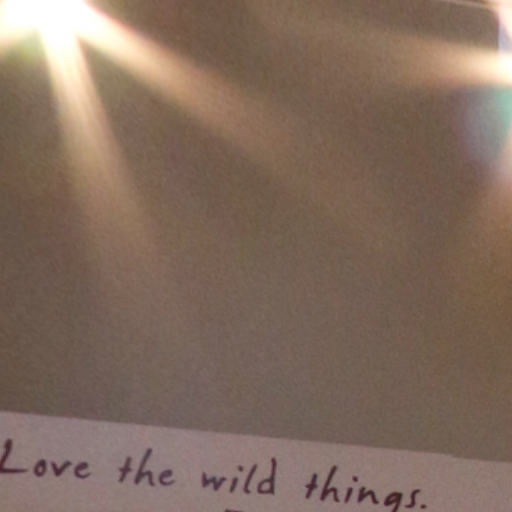 Love the wild things.